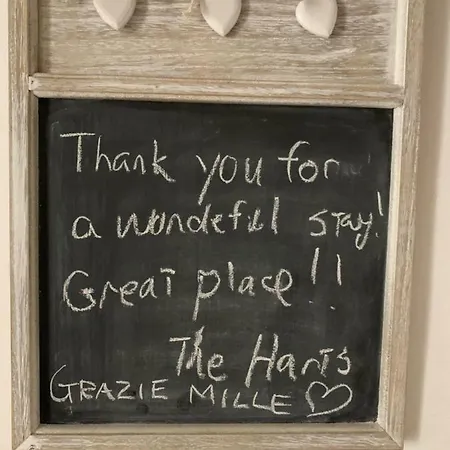 Thank you for
a wondefull stay!
Great place!!
The Harts
GRAZIE MILLE ♡